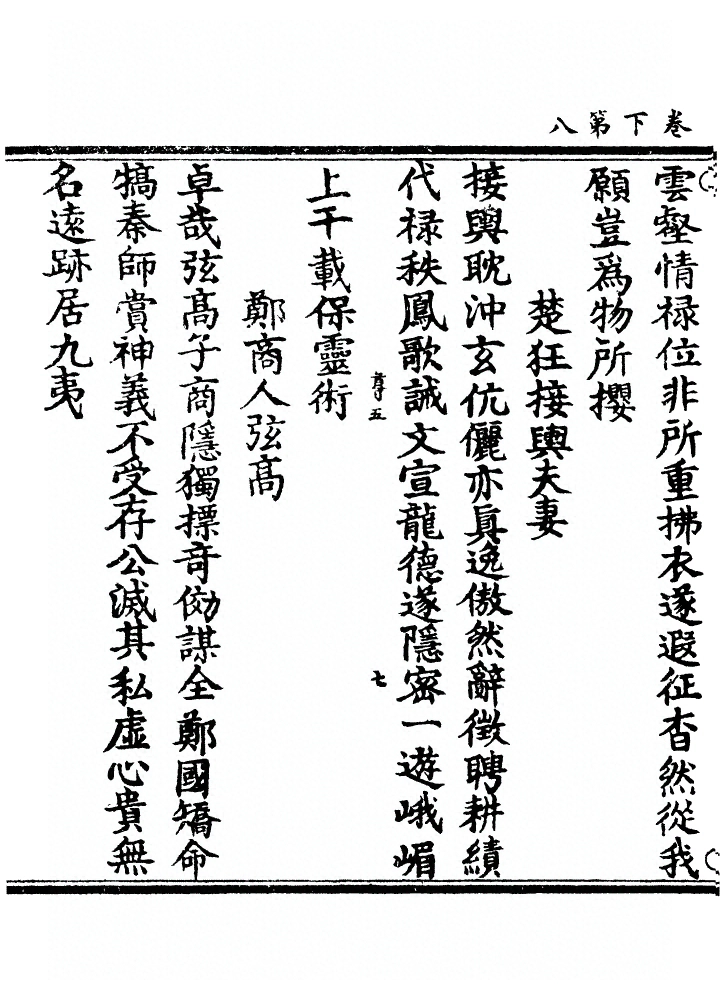 卷下第八
雲壑情禄位非所重拂衣遂遐征杳然從我
願豈爲物所攖
楚狂接輿夫妻
接輿耽沖玄伉儷亦眞逸傲然辭徵聘耕績
代禄秩鳳歌誡文宣龍德遂隱密一遊峨嵋
五
七
上千載保靈術
鄭商人弦高
卓哉弦高子商隱獨摽奇効謀全鄭國矯命
犒秦師賞神義不受存公滅其私虛心貴無
名遠跡居九夷